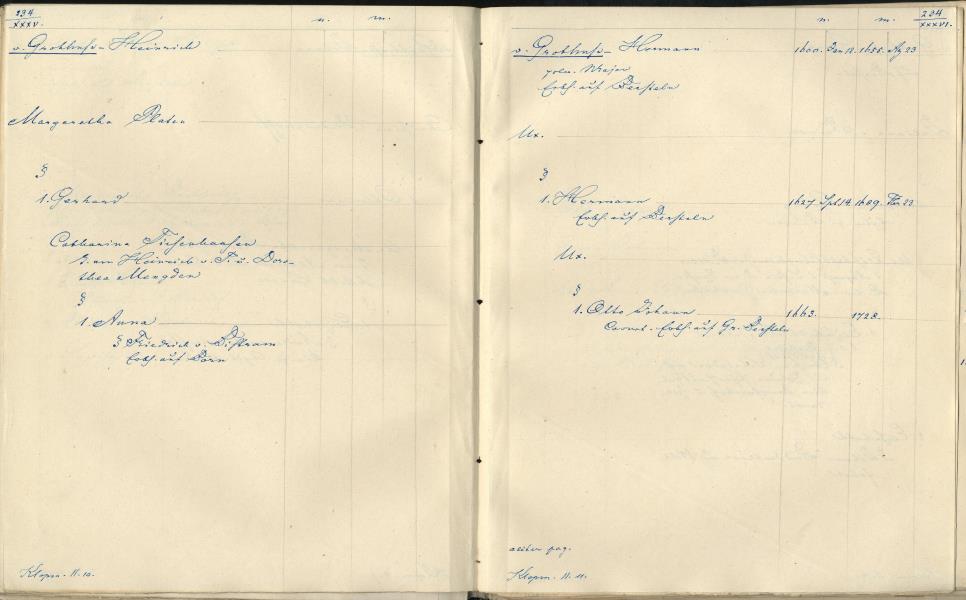 234
XXXV.
n. m.
v. Grotthuss - Heinrich
Margaretha Platen
§
1. Gerhard
Catharina Tiesenhausen
T. von Heinrich v. T. u. Doro-
thea Mengden
§
1. Anna
§ Friedrich v. Distram
Erbh. auf Dorn
Klopm. II. 10.
n. m.
234
XXXVI.
v. Grotthuss - Hermann 1600. Jan 12. 1655. 23
poln. Major
Erbh. auf Bersteln
Ux.
§
1. Hermann 1627. Spt. 14. 1689. 23
Erbh. auf Bersteln
Ux.
§
1. Otto Johann 1663. 1728.
Cornet. Erbh. auf Gr. Bersteln
pag.
Klopm. II. 11.